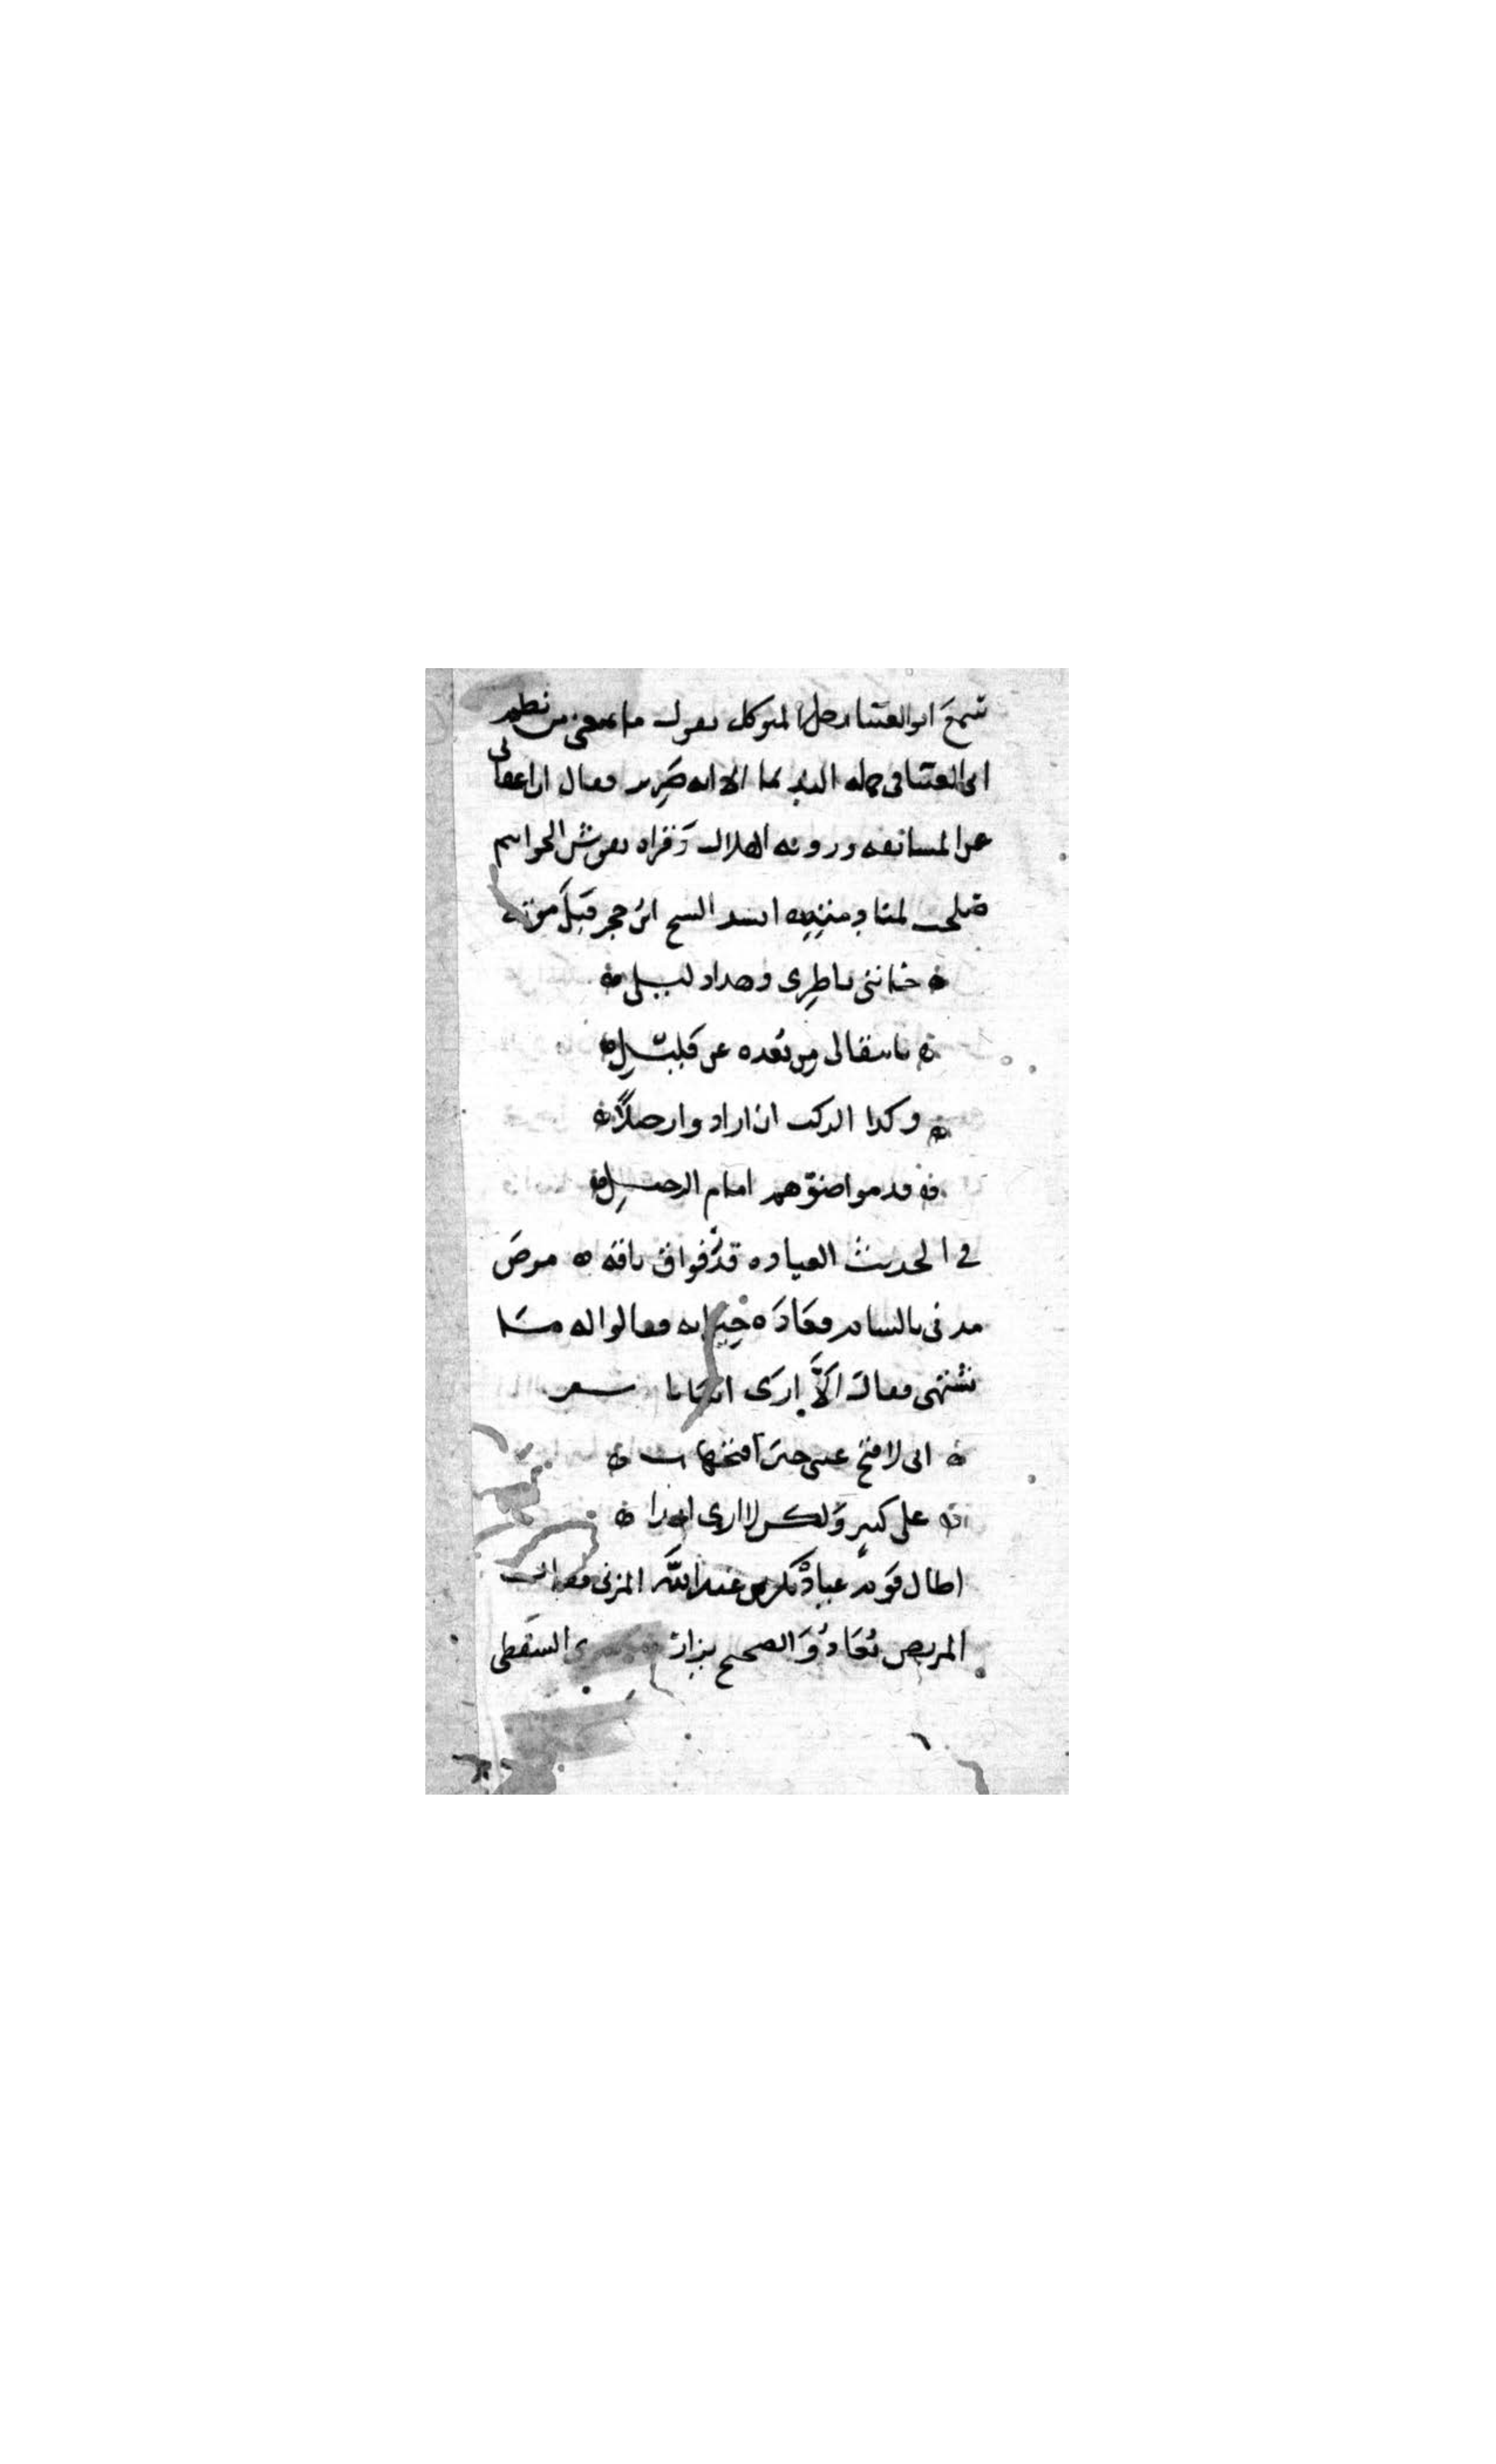 سمع ابو العينا رجل المتوكل يقول ما يمنعني من نظم
ابي العينا في جملة الندما الا انه ضرير فقال ان اعفاني
عن المسابقه وروية الهلال وقراة نقوش الخواتيم
صلحت لمنادمته انشد الشيخ ابن حجر قبل موته
خانني ناظري وهذا دليلي
بانتقالي من بعده عن قليل
وكذا الركب ان ارادوا رحيلا
قدموا ضوهم امام الرحيل
في الحديث العياده قدر فواق ناقه مرض
مدني بالشام فعاده جيرانه فقالوا له ما
تشتهي فقال الا ارى انسانا شعر
اني لافتح عيني حين افتحها
على كبير ولكن لا ارى احدا
اطال قوم عيادة بكر بن عبد الله المزني فقال
المريض يعاد والصحيح يزار السقطي